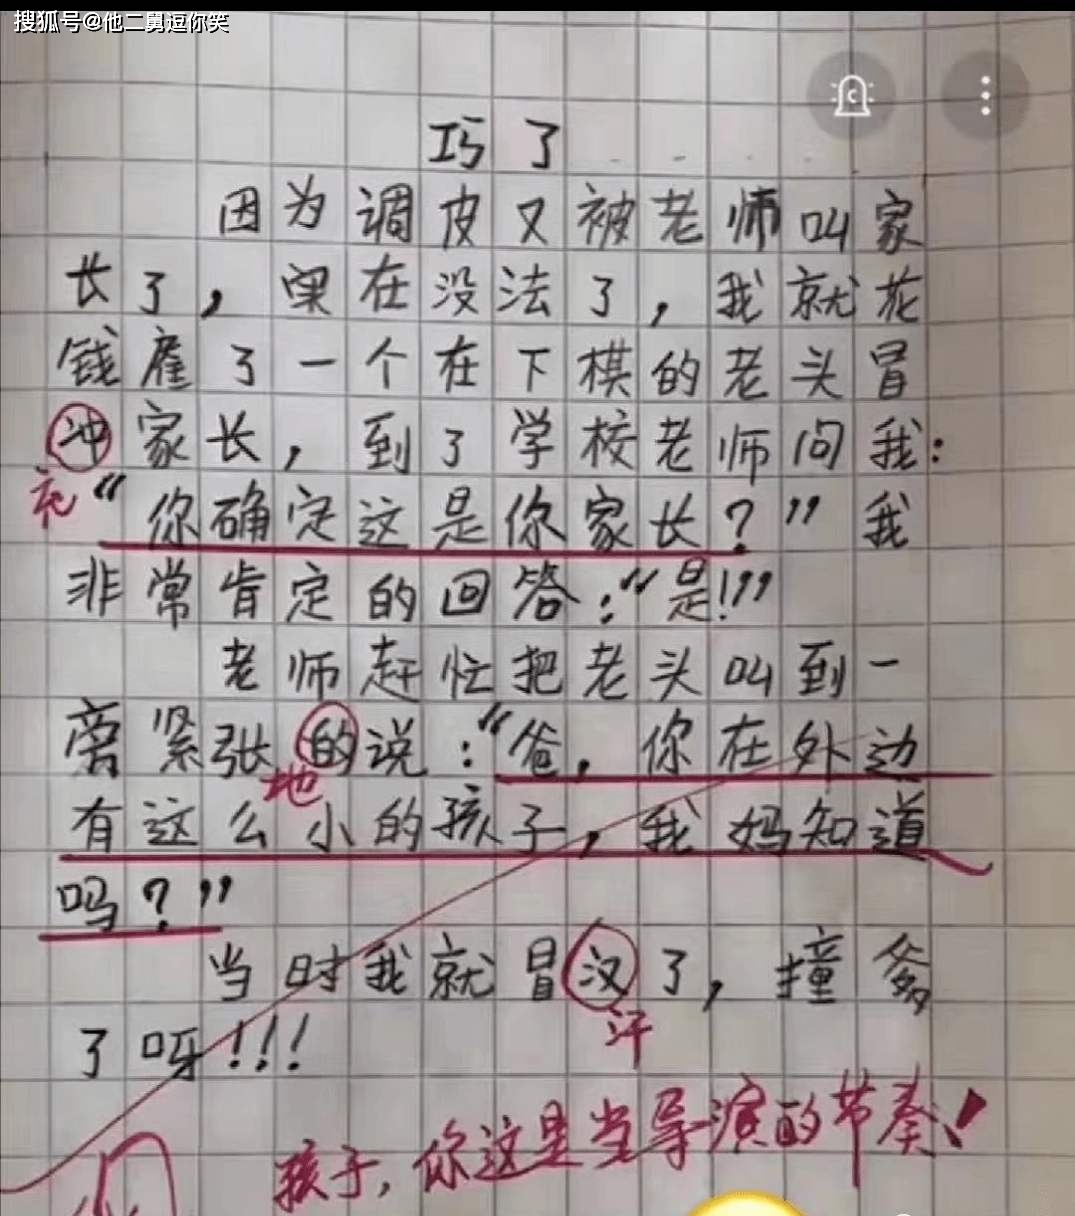 搜狐号@他二舅逗你笑
巧了
因为调皮又被老师叫家
长了，实在没法了，我就花
钱雇了一个在下棋的老头冒
冲家长，到了学校老师问我：
充
“你确定这是你家长？”我
非常肯定的回答：“是！”
老师赶忙把老头叫到一
旁紧张的说：“爸，你在外边
地
有这么小的孩子，我妈知道
吗？”
当时我就冒汉了，撞爹
汗
了呀！！！
孩子，你这是当导演的节奏！